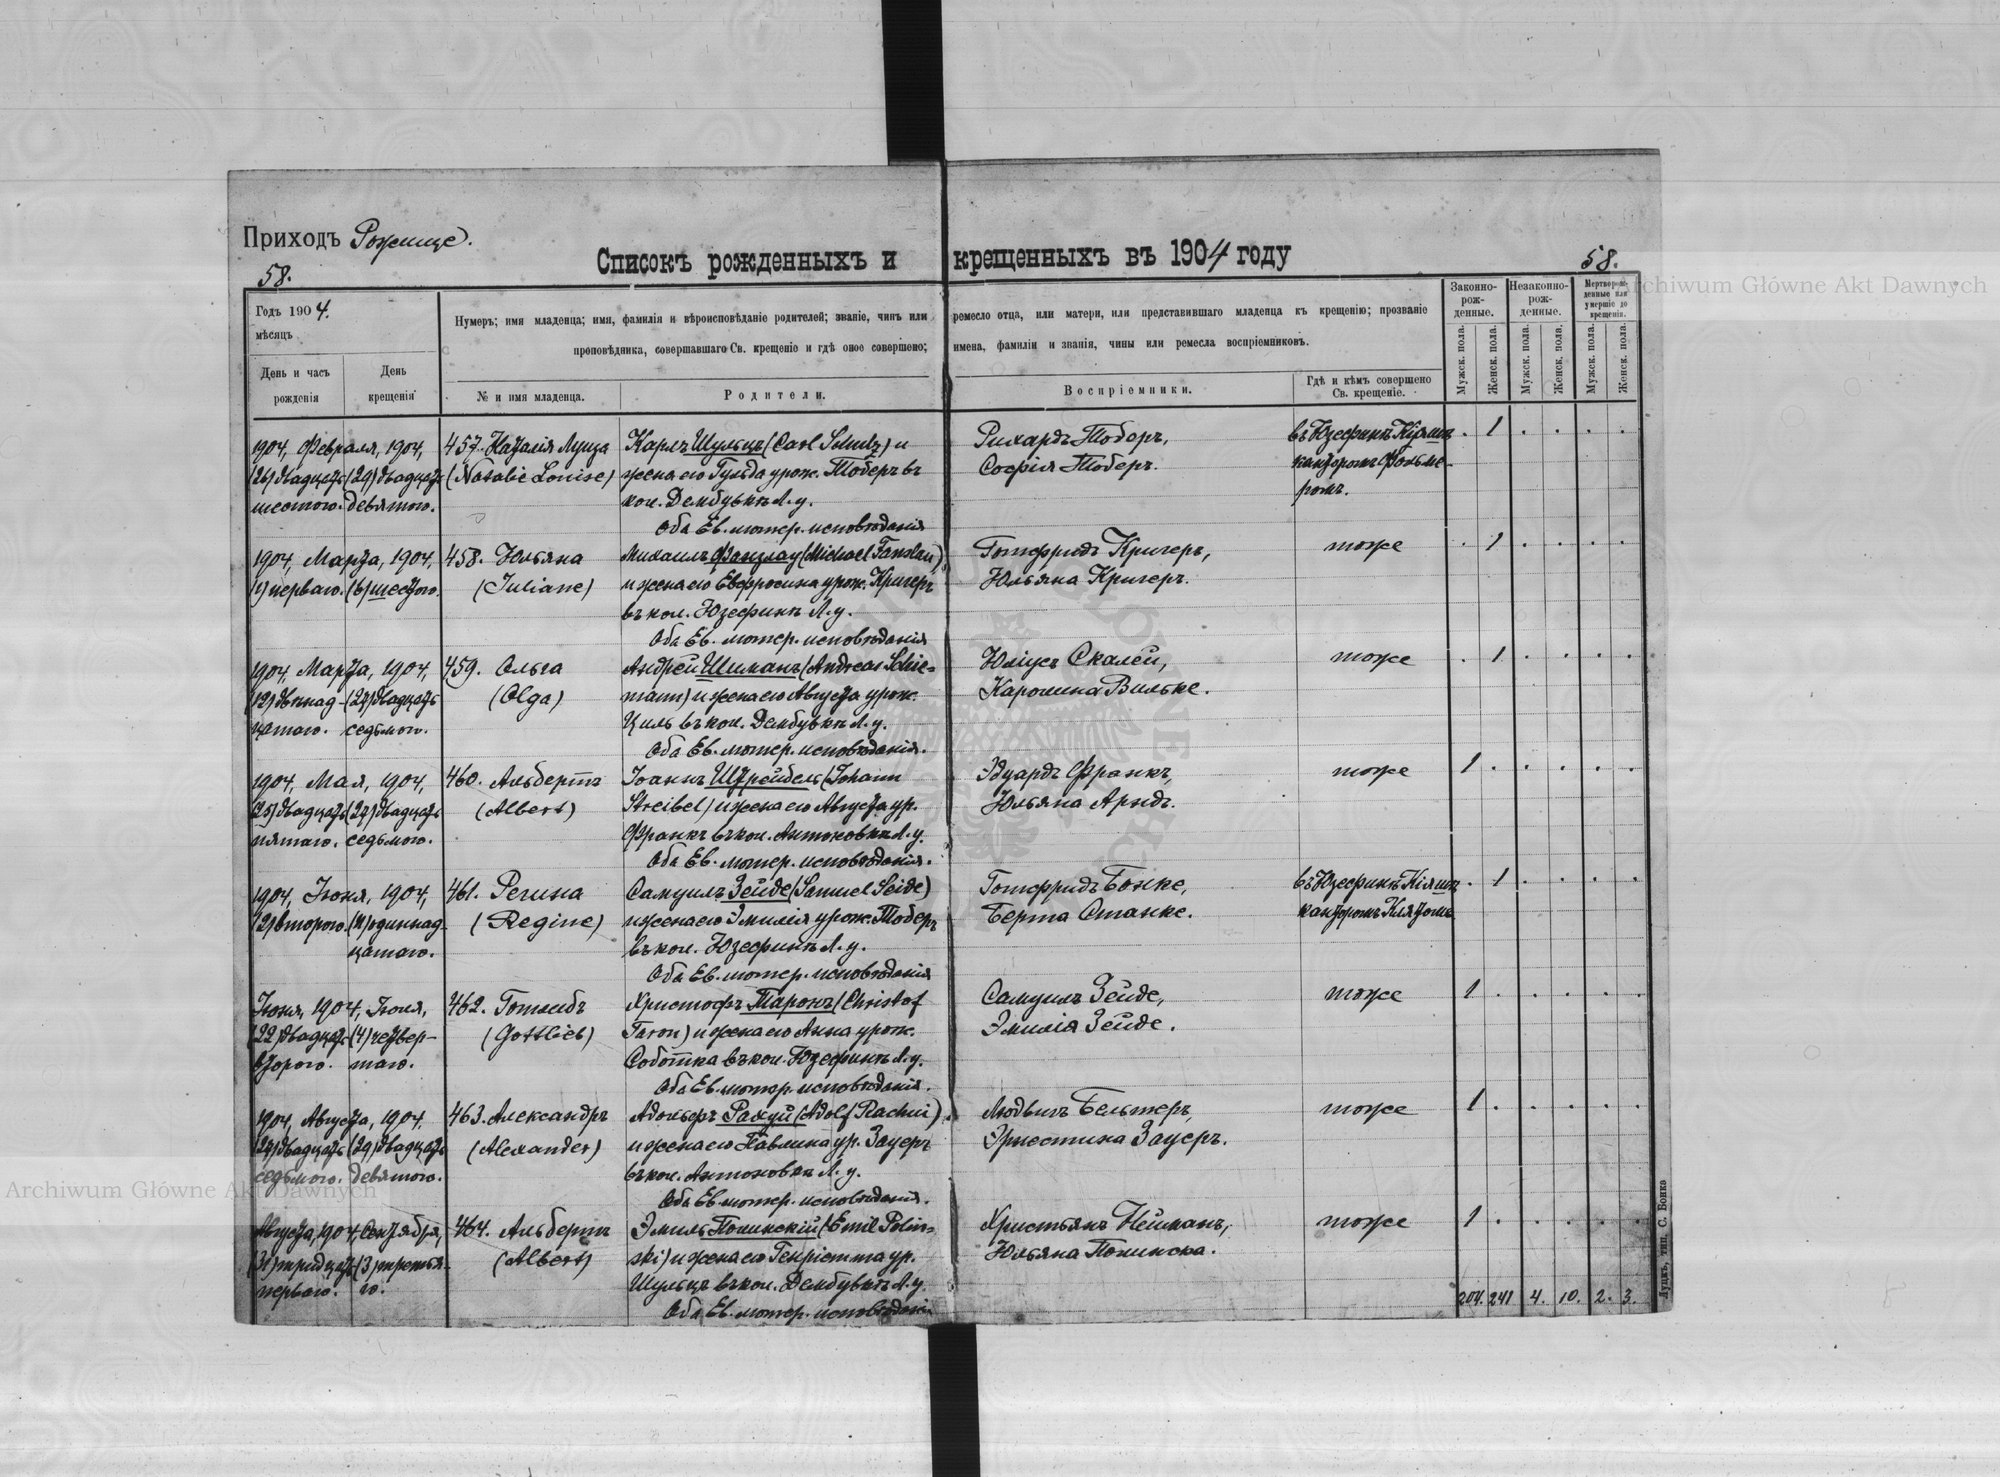 Приходъ Рожище.
58.
Списокъ рожденныхъ и крещенныхъ въ 1904 году
58.
Годъ 1904.
мѣсяцъ
День и часъ рожденія
День крещенія
Нумеръ; имя младенца; имя, фамилія и вѣроисповѣданіе родителей; званіе, чинъ или ремесло отца, или матери, или представившаго младенца къ крещенію; прозваніе
проповѣдника, совершавшаго Св. крещеніе и гдѣ оное совершено; имена, фамиліи и званія, чины или ремесла воспріемниковъ.
№ и имя младенца.
Родители.
Воспріемники.
Гдѣ и кѣмъ совершено Св. крещеніе.
Законно-рожденные.
Незаконно-рожденные.
Мертворожденные или умершіе до крещенія.
Мужск. пола.
Женск. пола.
Мужск. пола.
Женск. пола.
Мужск. пола.
Женск. пола.
1904, Февраля, 1904, 457. Наталія Луиза Карлъ Шульцъ (Carl Schulz) и Рихардъ Тоберъ, въ Юзефинѣ 1
(26) двадцать (29) двадцать (Natalie Louise) жена его Гульда урож. Тоберъ въ Софія Тоберъ. канторомъ Фольме-
шестого. девятого. кол. Дембувкѣ Л. у. ромъ.
Оба Ев. лютер. исповѣданія
1904, Марта, 1904, 458. Юльяна Михаилъ Фанзлау (Michael Fanslau) Готфридъ Кригеръ, тоже 1
(1) перваго. (6) шестого. (Juliane) и жена его Евфросина урож. Кригеръ Юльяна Кригеръ.
въ кол. Юзефинѣ Л. у.
Оба Ев. лютер. исповѣданія
1904, Марта, 1904, 459. Ольга Андрей Шиманъ (Andreas Schie- Юліусъ Скалей, тоже 1
(12) двѣнад- (27) двадцать (Olga) mann) и жена его Августа урож. Каролина Вильке.
цатого. седьмого. Циль въ кол. Дембувкѣ Л. у.
Оба Ев. лютер. исповѣданія.
1904, Мая, 1904, 460. Альбертъ Іоаннъ Штрейбель (Johann Эдуардъ Франкъ, тоже 1
(25) двадцать (27) двадцать (Albert) Streibel) и жена его Августа ур. Юльяна Арндъ.
пятаго. седьмого. Франкъ въ кол. Антоновкѣ Л. у.
Оба Ев. лютер. исповѣданія.
1904, Іюня, 1904, 461. Регина Самуилъ Зейде (Samuel Seide) Готфридъ Бонке, въ Юзефинѣ 1
(2) второго. (11) одиннад- (Regine) и жена его Эмилія урож. Тоберъ Берта Станке. канторомъ
цатого. въ кол. Юзефинѣ Л. у.
Оба Ев. лютер. исповѣданія
Іюня, 1904, Іюля, 462. Готлибъ Христофъ Таронъ (Christof Самуилъ Зейде, тоже 1
(22) двадцать (4) четвер- (Gottlieb) Taron) и жена его Анна урож. Эмилія Зейде.
второго. таго. Соботка въ кол. Юзефинѣ Л. у.
Оба Ев. лютер. исповѣданія.
1904, Августа, 1904, 463. Александръ Адольфъ Рахуй (Adolf Rachui) Людвигъ Бельтеръ, тоже 1
(27) двадцать (29) двадцать (Alexander) и жена его Павлина ур. Зауеръ Эрнестина Зауеръ.
седьмого. девятого. въ кол. Антоновкѣ Л. у.
Оба Ев. лютер. исповѣданія.
Августа, 1904, Сентября, 464. Альбертъ Эмиль Полинскій (Emil Polin- Христьянъ Нейманъ, тоже 1
(31) тридцать (3) третья- (Albert) ski) и жена его Генріетта ур. Юльяна Полинска.
перваго. го. Шульцъ въ кол. Дембувкѣ Л. у.
Оба Ев. лютер. исповѣданія
204. 241 4. 10. 2. 3.
Луцкъ, тип. С. Бонка
Archiwum Główne Akt Dawnych
Archiwum Główne Akt Dawnych